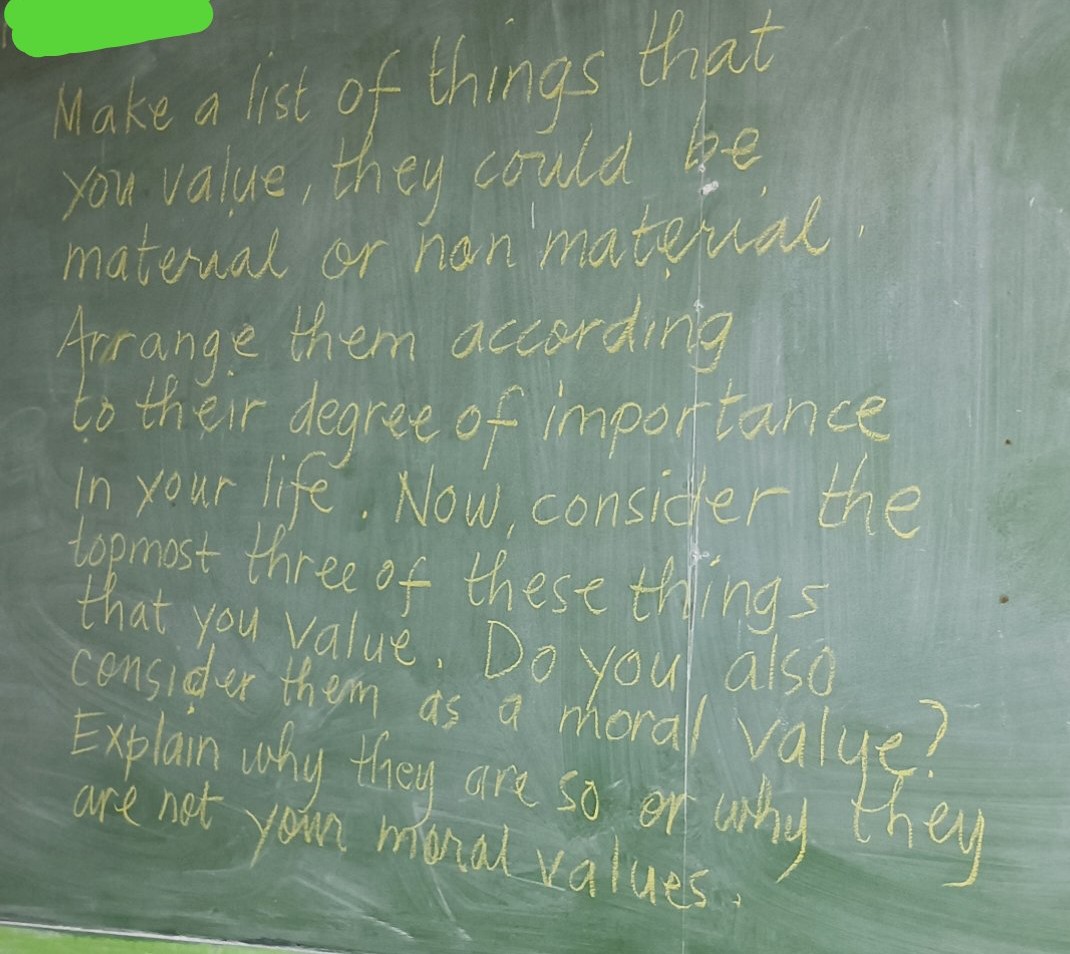 Make a list of things that
you value, they could be
material or non material.
Arrange them according
to their degree of importance
in your life. Now, consider the
topmost three of these things
that you value. Do you also
consider them as a moral value?
Explain why they are so or why they
are not your moral values.